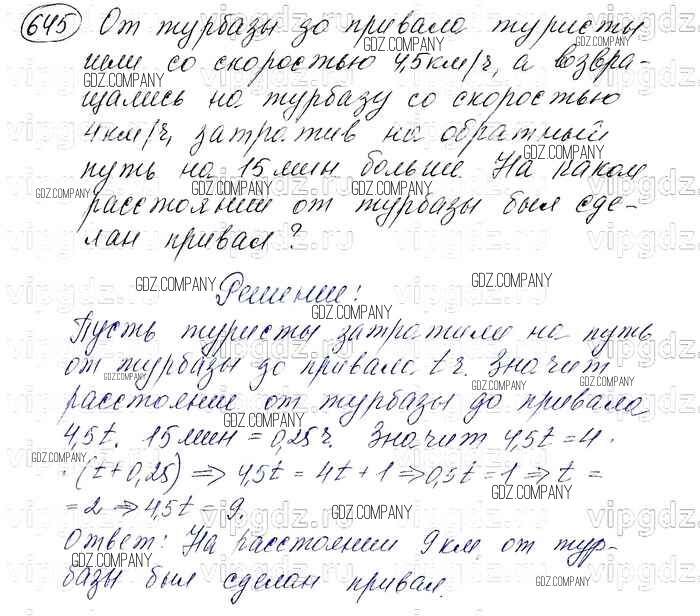 645 От турбазы до привала туристы
шли со скоростью 4,5км/ч, а возвра-
щались на турбазу со скоростью
4км/ч, затратив на обратный
путь на 15 мин больше. На каком
расстоянии от турбазы был сде-
лан привал?
Решение:
Пусть туристы затратили на путь
от турбазы до привала t ч. Значит
расстояние от турбазы до привала
4,5t. 15мин = 0,25ч. Значит 4,5t = 4·
·(t+0,25) => 4,5t = 4t + 1 => 0,5t = 1 => t =
= 2 => 4,5t = 9.
Ответ: На расстоянии 9 км от тур-
базы был сделан привал.